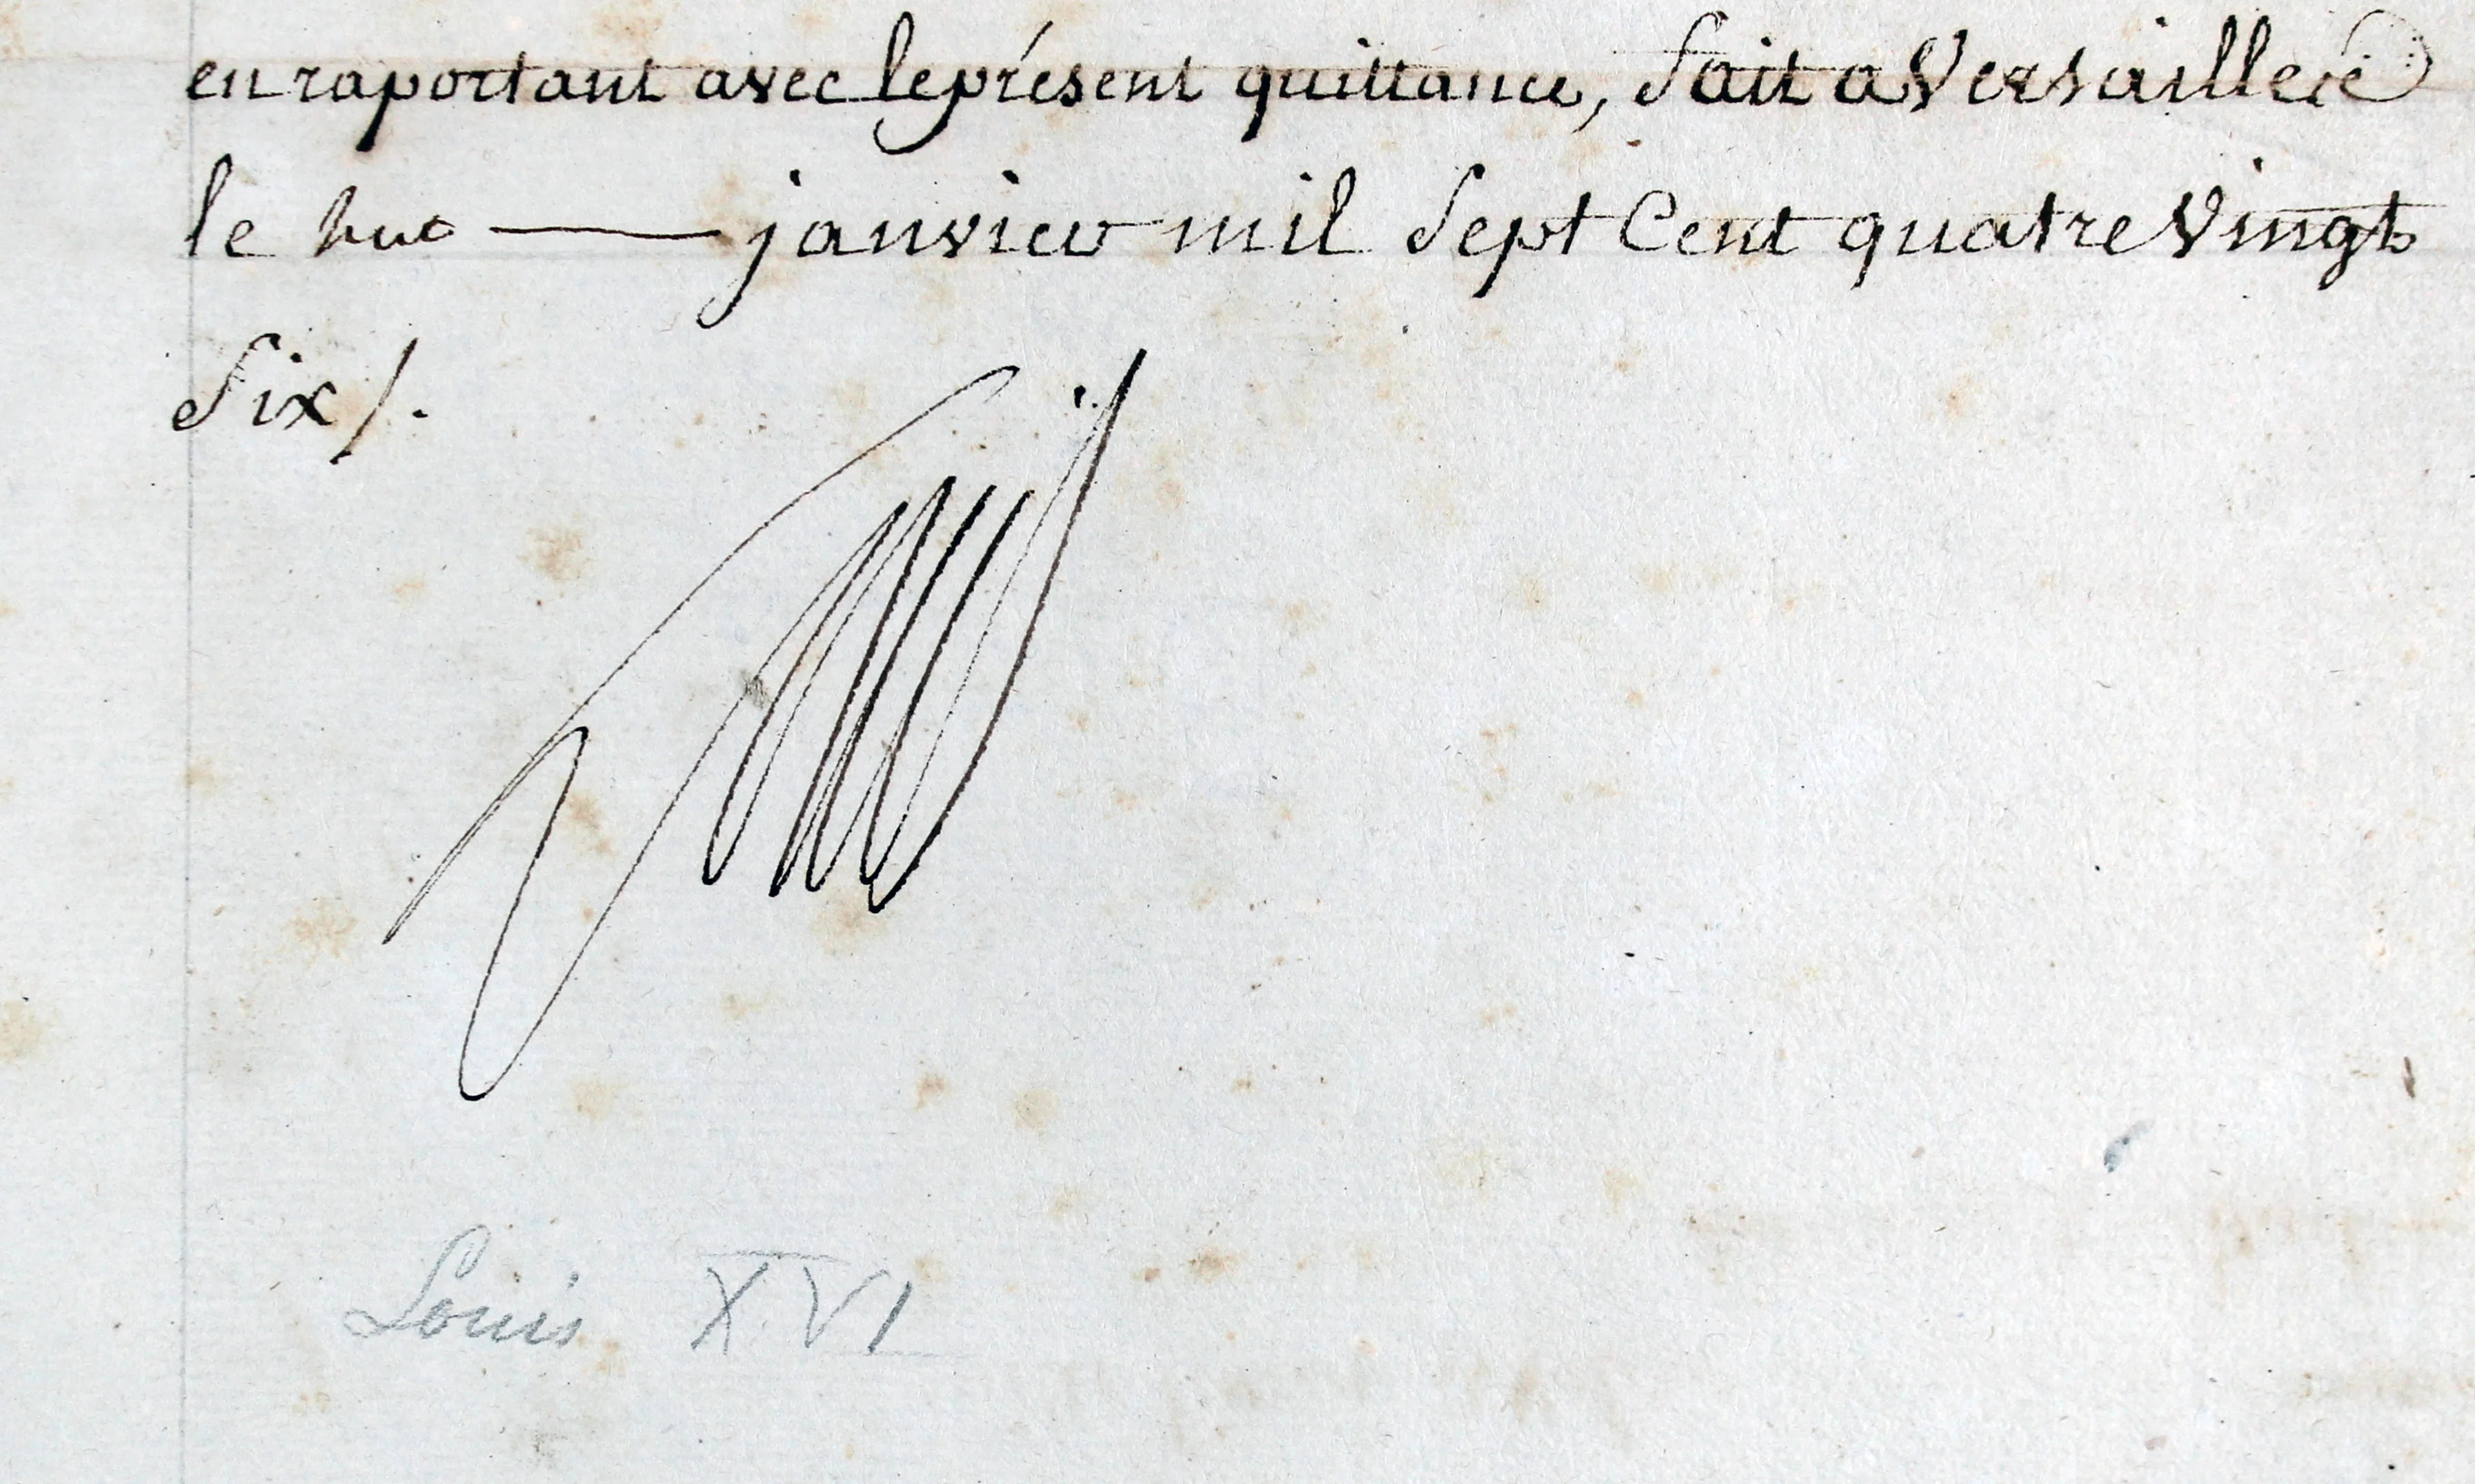 en raportant avec le présent quittance, fait a Versailles
le huit janvier mil Sept Cent quatre Vingt
Six /.
Louis XVI